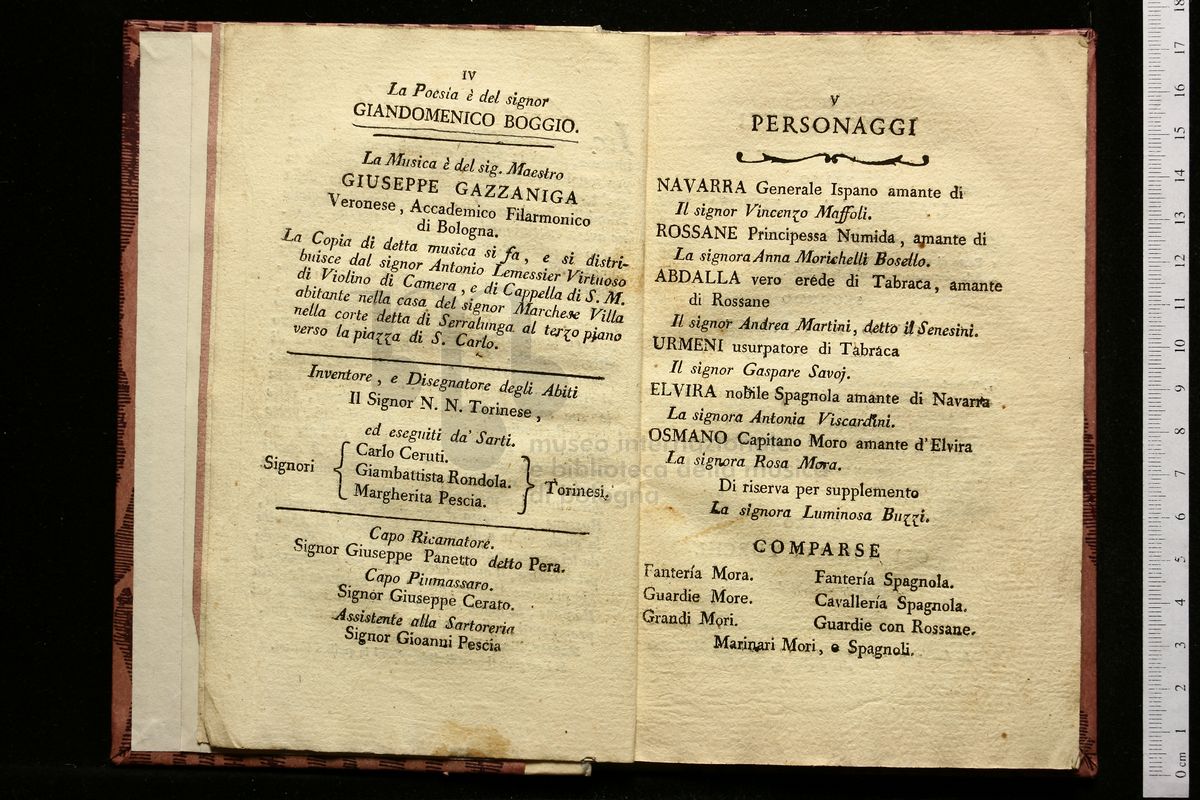 IV
La Poesia è del signor
GIANDOMENICO BOGGIO.
La Musica è del sig. Maestro
GIUSEPPE GAZZANIGA
Veronese, Accademico Filarmonico
di Bologna.
La Copia di detta musica si fa, e si distri-
buisce dal signor Antonio Lemessier Virtuoso
di Violino di Camera, e di Cappella di S. M.
abitante nella casa del signor Marchese Villa
nella corte detta di Serralunga al terzo piano
verso la piazza di S. Carlo.
Inventore, e Disegnatore degli Abiti
Il Signor N. N. Torinese,
ed eseguiti da' Sarti.
Carlo Ceruti.
Signori Giambattista Rondola. Torinesi.
Margherita Pescia.
Capo Ricamatore.
Signor Giuseppe Panetto detto Pera.
Capo Piumassaro.
Signor Giuseppe Cerato.
Assistente alla Sartoreria
Signor Gioanni Pescia
V
PERSONAGGI
NAVARRA Generale Ispano amante di
Il signor Vincenzo Maffoli.
ROSSANE Principessa Numida, amante di
La signora Anna Morichelli Bosello.
ABDALLA vero erede di Tabraca, amante
di Rossane
Il signor Andrea Martini, detto il Senesini.
URMENI usurpatore di Tabraca
Il signor Gaspare Savoj.
ELVIRA nobile Spagnola amante di Navarra
La signora Antonia Viscardini.
OSMANO Capitano Moro amante d'Elvira
La signora Rosa Mora.
Di riserva per supplemento
La signora Luminosa Buzzi.
COMPARSE
Fantería Mora. Fantería Spagnola.
Guardie More. Cavallería Spagnola.
Grandi Mori. Guardie con Rossane.
Marinari Mori, e Spagnoli.
museo internazionale
e biblioteca della musica
di bologna
0 cm 1 2 3 4 5 6 7 8 9 10 11 12 13 14 15 16 17 18